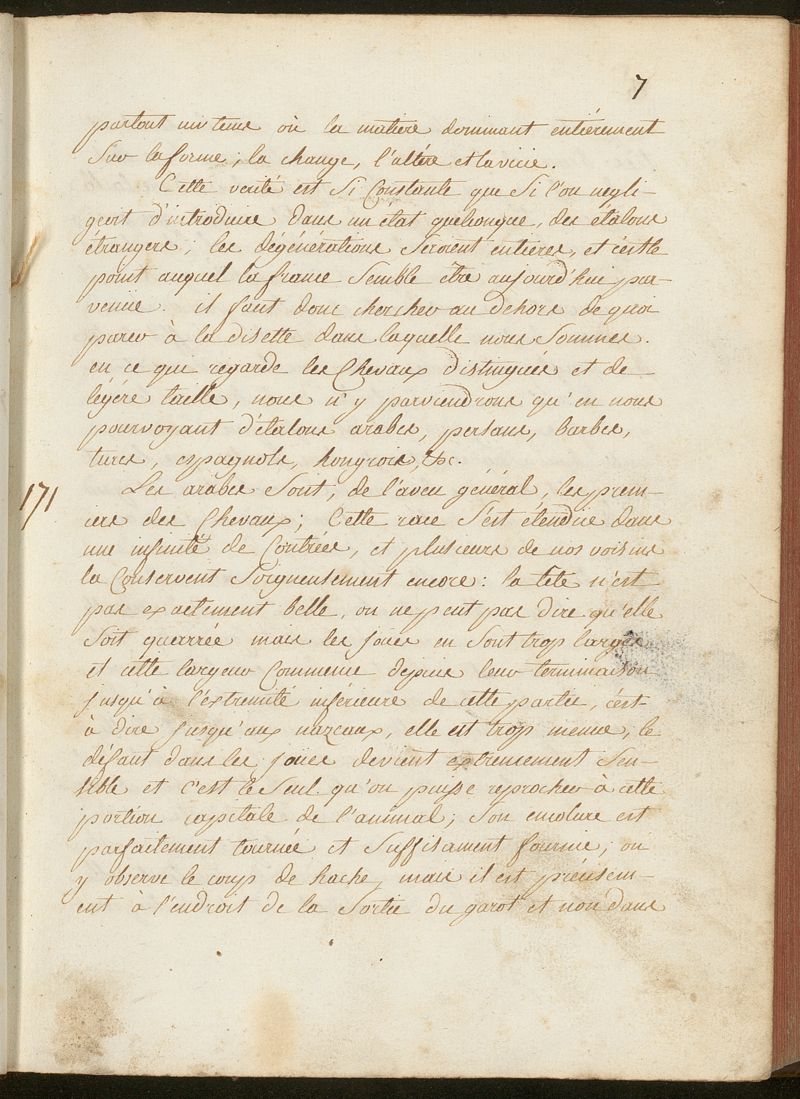 7
partout un tems où la matiere dominant entiérement
Sur la forme, la change, l'altére et la vicie.
Cette verité est Si Constante que Si l'on negli-
geoit d'introduire dans un etat quelconque, des étalons
étrangers, les dégénérations Seroient entieres, et c'est le
point auquel la france Semble être aujourd'hui par-
venüe. il faut donc chercher au dehors de quoi
parer à la disette dans laquelle nous Sommes.
en ce qui regarde les Chevaux distingués et de
légére taille, nous n'y parviendrons qu'en nous
pourvoyant d'étalons arabes, persans, barbes,
turcs, espagnols, hongrois, &c.
171
Les arabes Sont, de l'aveu général, les prem-
iers des Chevaux; Cette race S'est étendüe dans
une infinité de Contrées, et plusieurs de nos voisins
la Conservent Soigneusement encore: la tete n'est
pas exactement belle, on ne peut pas dire qu'elle
Soit quarrée mais les joues en Sont trop larges
et cette largeur Commence depuis leur terminaison
jusqu'à l'extremité inférieure de cette partie, c'est
à dire jusqu'aux nazeaux, elle est trop menue, le
défaut dans les joües devient extremement Sen-
sible et c'est le Seul qu'on puisse reprocher à cette
portion capitale de l'animal; Son encolure est
parfaitement tournée et Suffisament fournie; on
y observe le coup de hache, mais il est précisem-
ent à l'endroit de la Sortie du garot et non dans